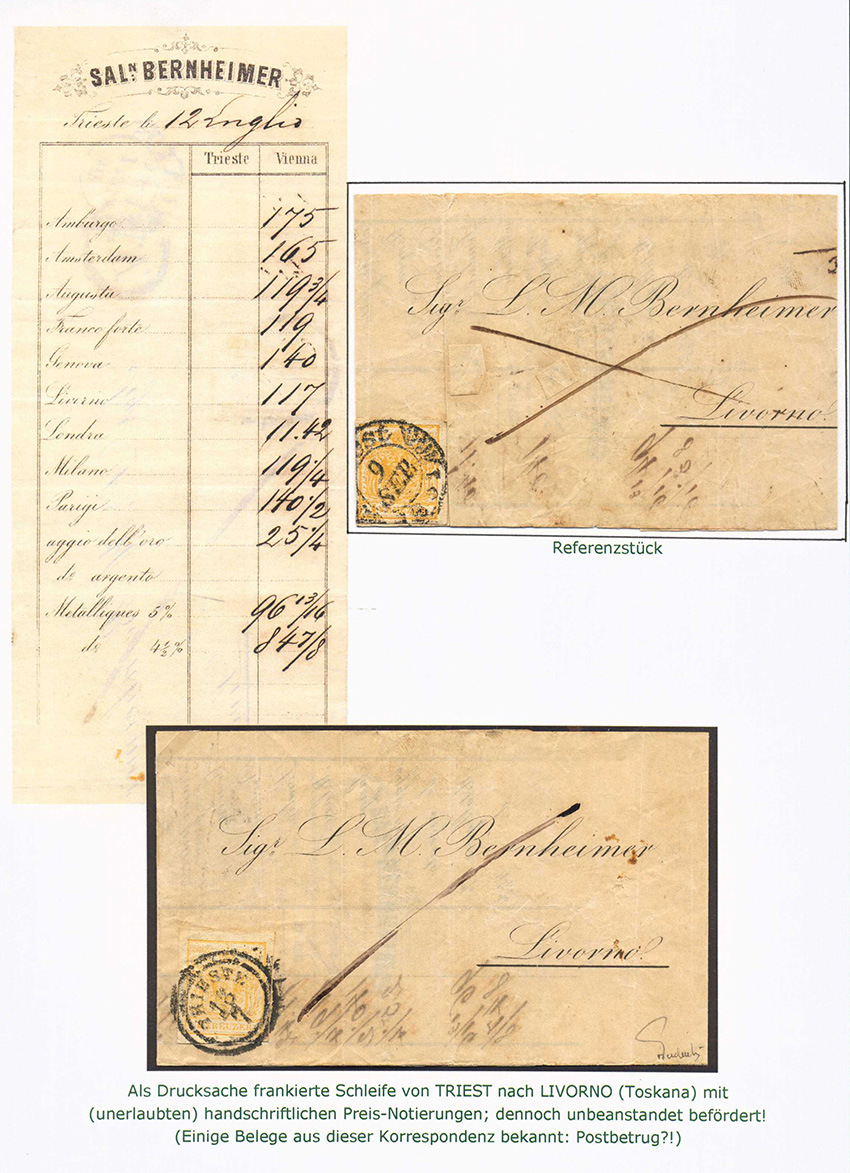 SALN BERNHEIMER
Trieste li 12 Luglio
Trieste Vienna
Amburgo 175
Amsterdam 165
Augusta 119 3/4
Francoforte 119
Genova 140
Livorno 117
Londra 11.42
Milano 119 1/4
Parigi 140 1/2
aggio dell'oro 25 1/4
do argento
Metalliques 5% 96 13/16
do 4½% 84 7/8
3
Sigr L. M. Bernheimer
Livorno.
9
SEP.
Referenzstück
Sigr L. M. Bernheimer
Livorno.
TRIESTE
KREUZER
Als Drucksache frankierte Schleife von TRIEST nach LIVORNO (Toskana) mit
(unerlaubten) handschriftlichen Preis-Notierungen; dennoch unbeanstandet befördert!
(Einige Belege aus dieser Korrespondenz bekannt: Postbetrug?!)